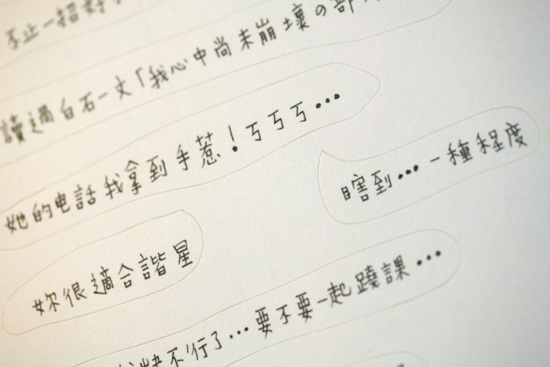 不止一招
讀過白石一文「我心中尚未崩壞の部
她的电話我拿到手惹！ㄎㄎㄎ…
瞎到…一種程度
妳很適合諧星
快不行了…要不要一起蹺課…